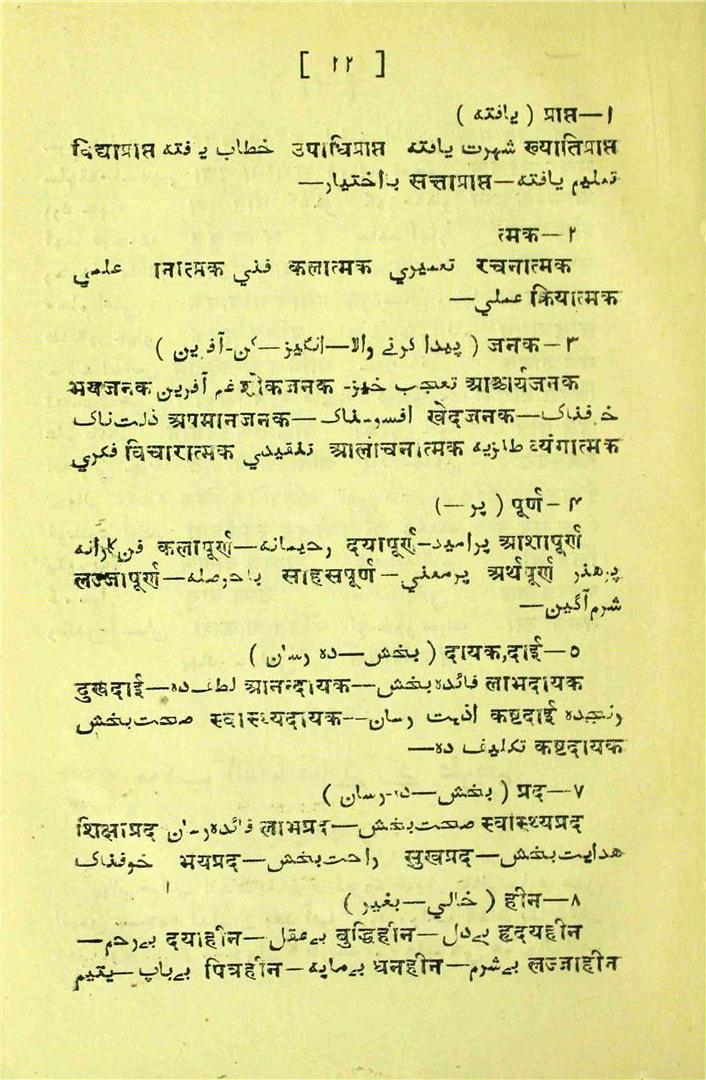 [ ۲۲ ]
۱—प्राप्त ( یافتہ )
ख्यातिप्राप्त شہرت یافتہ उपाधिप्राप्त خطاب یافتہ विद्याप्राप्त
تعلیم یافتہ—सत्ताप्राप्त بااختیار—
۲—त्मक
रचनात्मक تعمیري कलात्मक فني ानात्मक علمي
क्रियात्मक عملي—
۳—जनक ( پیدا کرنے والا—انگیز—کن-آفرین )
आश्चर्यजनक تعجب خیز- शोकजनक غم آفرین भयजनक
خوفناک—खेदजनक افسوسناک—अपमानजनक ذلت ناک
व्यंगात्मक طنزیہ आलोचनात्मक تنقیدي विचारात्मक فکري
۴-पूर्ण ( پر—)
आशापूर्ण پرامید—दयापूर्ण رحیمانہ—कलापूर्ण فن کارانہ
پرهنر अर्थपूर्ण پرمعني—साहसपूर्ण باحوصلہ—लज्जापूर्ण
شرم آگین—
۵—दायक,दाई ( بخش—دہ رساں )
लाभदायक فائدہ بخش—आनन्दायक لطف دہ—दुखदाई
رنجدہ कष्टदाई اذیت رسان—स्वास्थ्यदायक صحت بخش
कष्टदायक تکلیف دہ—
۷—प्रद ( بخش—دہ-رسان )
स्वास्थ्यप्रद صحت بخش—लाभप्रद فائدہ رسان शिक्षाप्रद
هدایت بخش—सुखप्रद راحت بخش—भयप्रद خوفناک
۸—हीन ( خالي—بغیر )
हृदयहीन بےدل—बुद्धिहीन بےعقل—दयाहीन بےرحم—
लज्जाहीन بےشرم—धनहीन بےمایہ—पित्रहीन بےباپ—یتیم